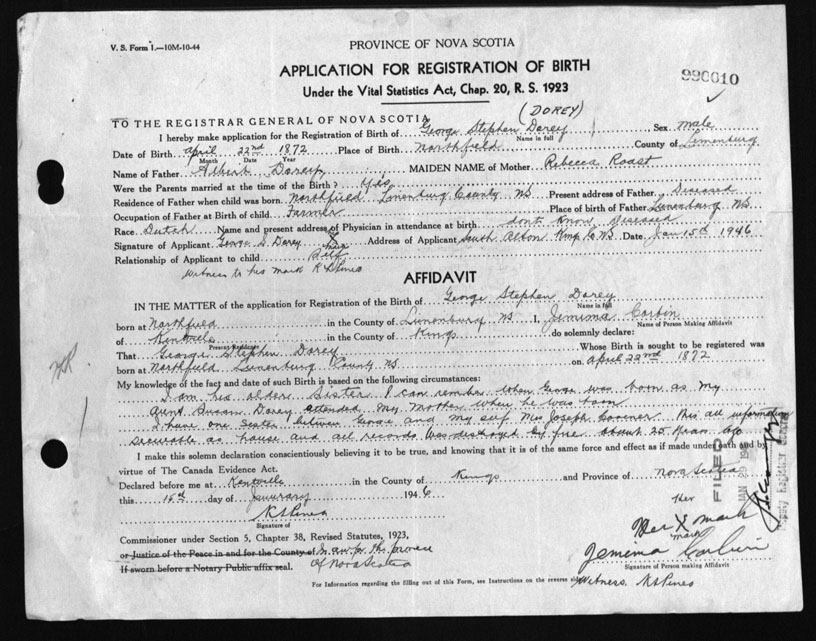 V. S. Form 1.—10M-10-44
PROVINCE OF NOVA SCOTIA
APPLICATION FOR REGISTRATION OF BIRTH
990010
Under the Vital Statistics Act, Chap. 20, R. S. 1923
(DOREY)
TO THE REGISTRAR GENERAL OF NOVA SCOTIA
I hereby make application for the Registration of Birth of George Stephen Dorey Sex male
Name in full
Date of Birth april 22nd 1872 Place of Birth Northfield County of Lunenburg
Month Date Year
Name of Father Albert Dorey MAIDEN NAME of Mother Rebecca Roast
Were the Parents married at the time of the Birth? Yes
Residence of Father when child was born Northfield Lunenburg County NS Present address of Father Diseased
Occupation of Father at Birth of child Farmer Place of birth of Father Lunenburg NS
Race Dutch Name and present address of Physician in attendance at birth dont Know diseased
Signature of Applicant George S Dorey X Address of Applicant South Alton Kings Co NS Date Jan 15th 1946
Relationship of Applicant to child Self
Witness to his mark
AFFIDAVIT
IN THE MATTER of the application for Registration of the Birth of George Stephen Dorey
Name in full
born at Northfield in the County of Lunenburg NS I, Jemima Corbin
Name of Person Making Affidavit
of Kentville in the County of Kings do solemnly declare:
Present Residence
That George Stephen Dorey Whose Birth is sought to be registered was
born at Northfield Lunenburg County NS on april 22nd 1872
My knowledge of the fact and date of such Birth is based on the following circumstances:
I am his older Sister I can rember when George was born as my
aunt Susan Dorey attended My Mother when he was born
I have one Sister between George and my self Mrs Joseph This all information
as house and all records was destroyed by fire about 25 years ago
I make this solemn declaration conscientiously believing it to be true, and knowing that it is of the same force and effect as if made under oath and by
virtue of The Canada Evidence Act.
Declared before me at Kentville in the County of Kings and Province of Nova Scotia
this 15th day of January 1946
Signature of
FILED
JAN 29 1946
Deputy Registrar General
Her
Her X mark
mark
Jemima Corbin
Signature of Person making Affidavit
Commissioner under Section 5, Chapter 38, Revised Statutes, 1923,
or Justice of the Peace in and for the County of
If sworn before a Notary Public affix seal. of Nova Scotia
For Information regarding the filling out of this Form, see Instructions on the reverse side
Witness.